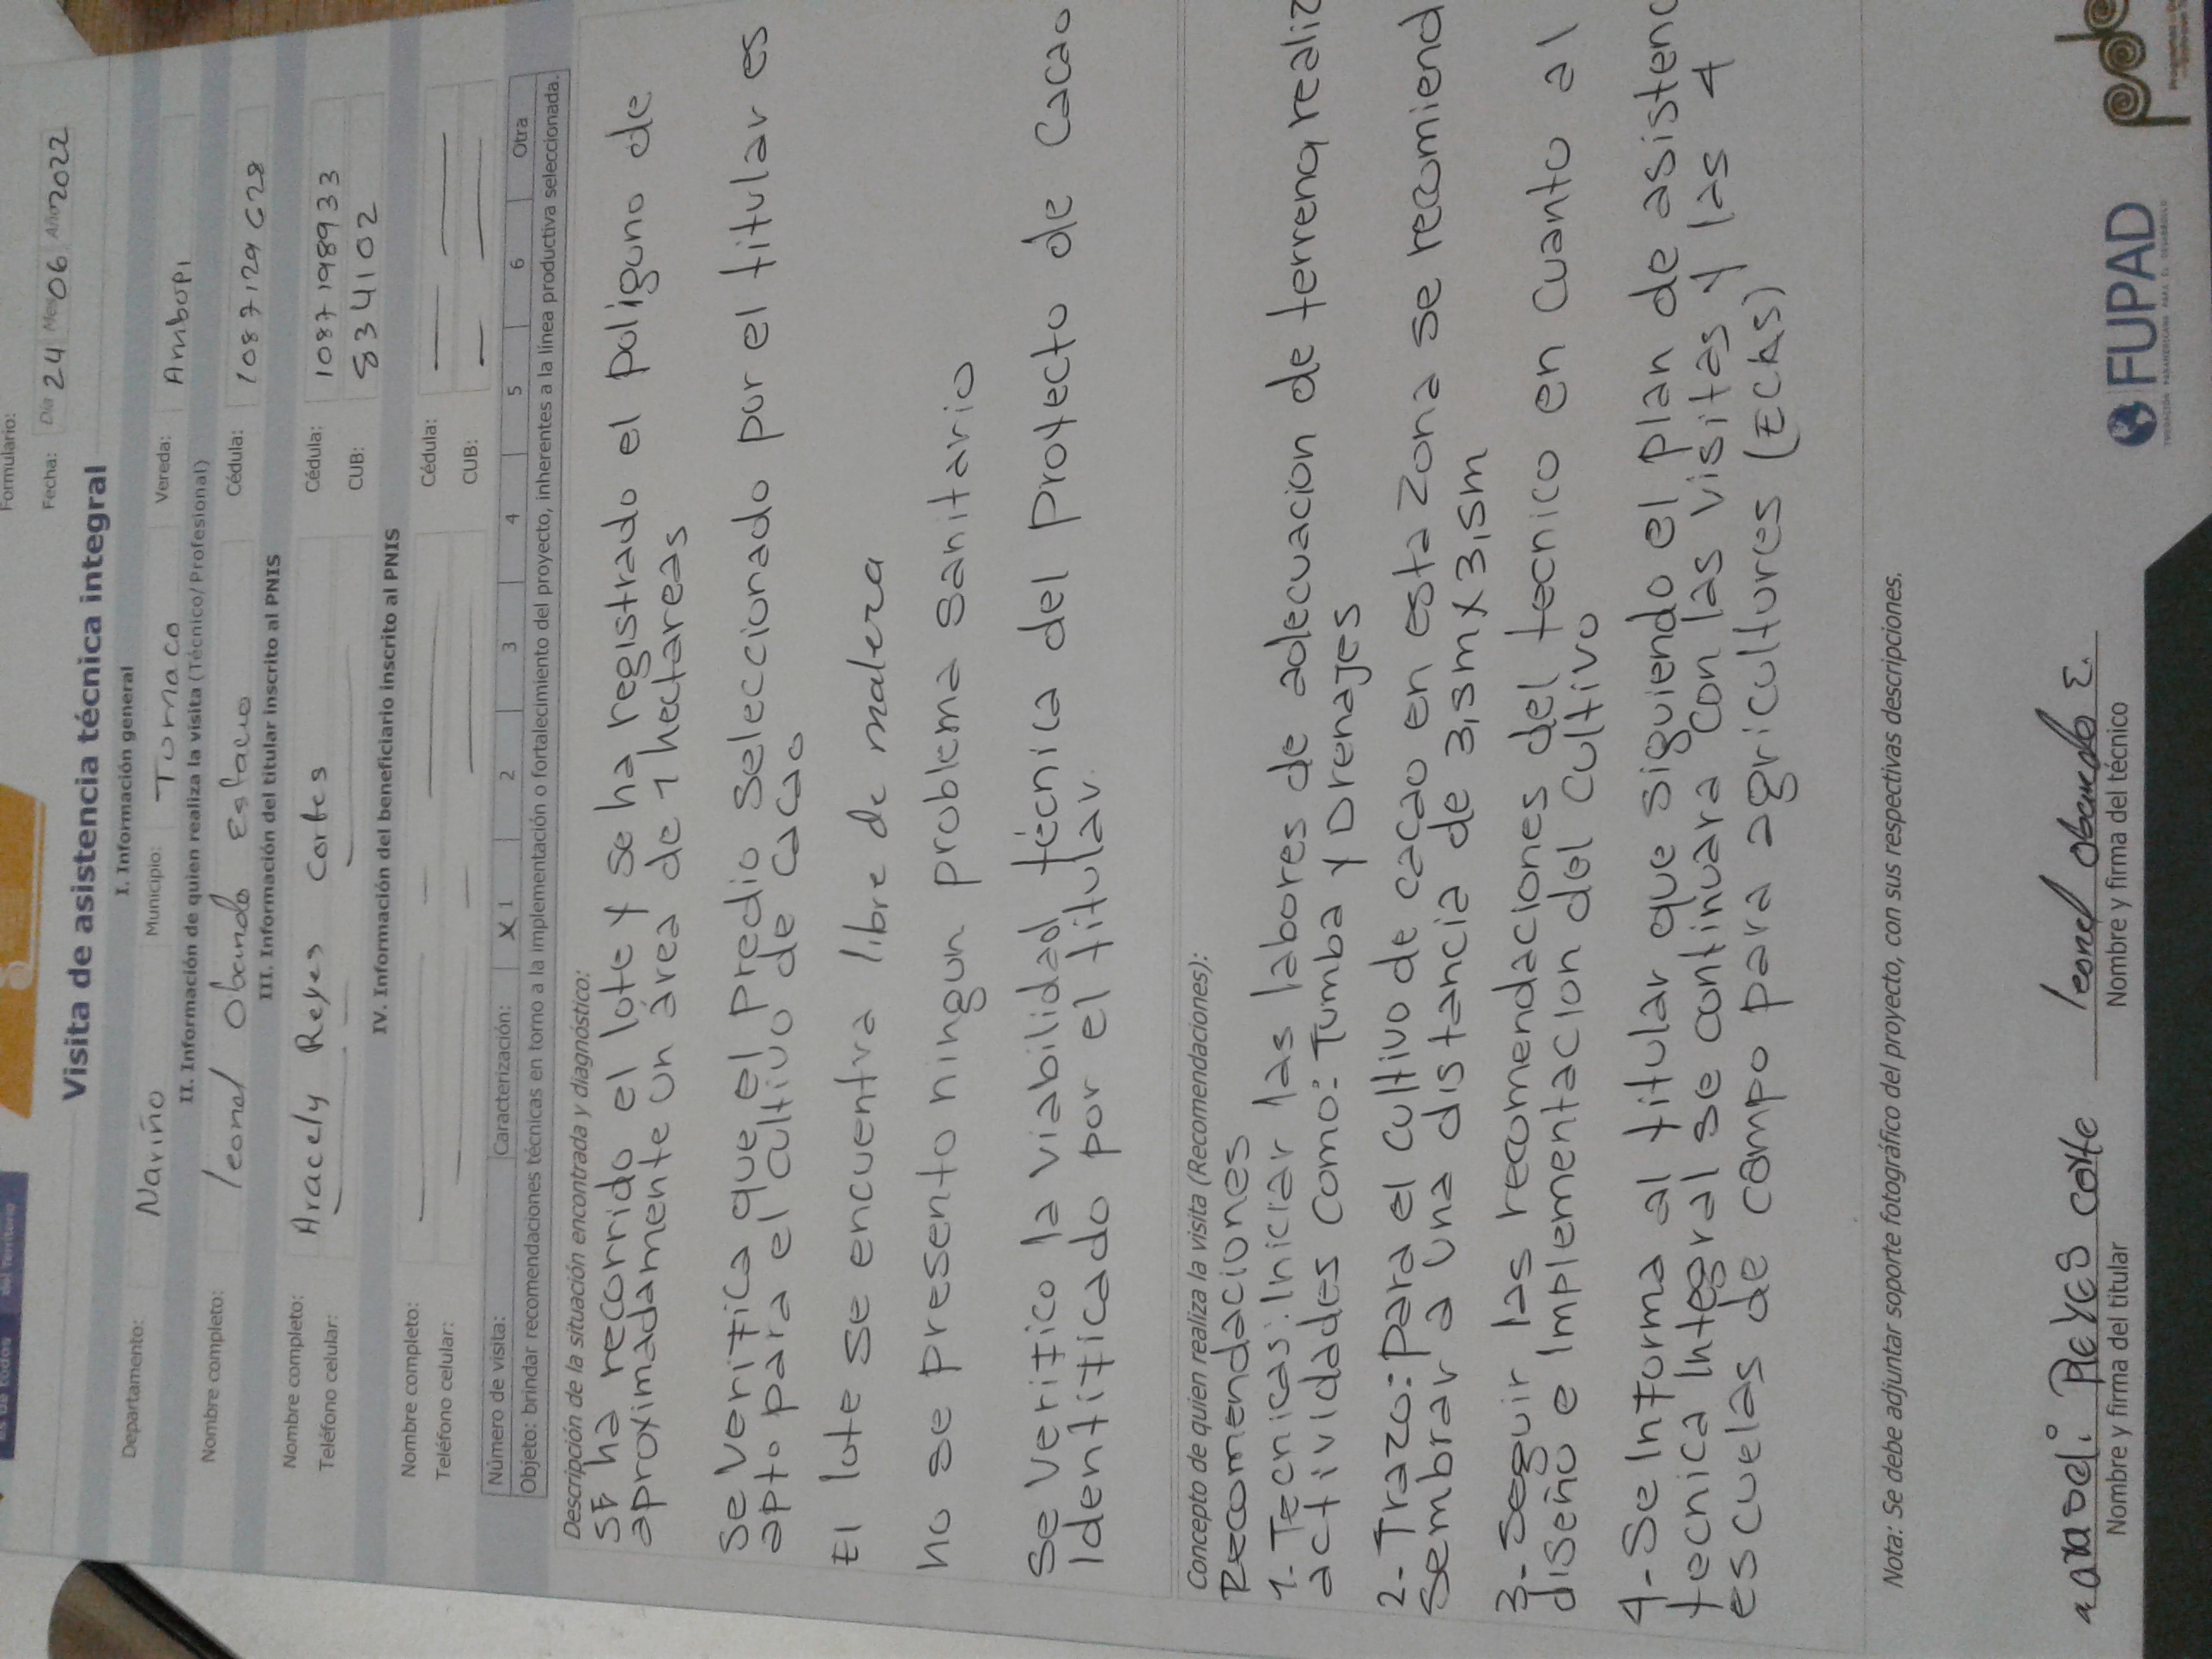 Formulario:
Fecha: Día 24 Mes 06 Año 2022
Visita de asistencia técnica integral
I. Información general
Departamento: Nariño Municipio: Tumaco Vereda: Ambupi
II. Información de quien realiza la visita (Técnico/Profesional)
Nombre completo: leonel Obando Estacio Cédula: 1087129628
III. Información del titular inscrito al PNIS
Nombre completo: Aracely Reyes Cortes Cédula: 1087198933
Teléfono celular: CUB: 834102
IV. Información del beneficiario inscrito al PNIS
Nombre completo: Cédula:
Teléfono celular: CUB:
Número de visita: Caracterización: X 1 2 3 4 5 6 Otra
Objeto: brindar recomendaciones técnicas en torno a la implementación o fortalecimiento del proyecto, inherentes a la línea productiva seleccionada.
Descripción de la situación encontrada y diagnóstico:
se ha recorrido el lote y se ha registrado el poliguno de
aproximadamente un área de 1 hectareas
se verifica que el predio seleccionado por el titular es
apto para el cultivo de cacao
El lote se encuentra libre de maleza
no se presento ningun problema sanitario
Se verifico la viabilidad técnica del proyecto de cacao
Identificado por el titular.
Concepto de quien realiza la visita (Recomendaciones):
Recomendaciones
1- Tecnicas: Iniciar las labores de adecuacion de terreno, realiz
actividades como: Tumba y Drenajes
2- Trazo: para el cultivo de cacao en esta zona se recomiend
sembrar a una distancia de 3,5m x 3,5m
3- Seguir las recomendaciones del tecnico en cuanto al
diseño e Implementacion del cultivo
4- Se Informa al titular que siguiendo el plan de asistenc
tecnica Integral se continuara con las visitas y las 4
escuelas de campo para agricultures (ECAS)
Nota: Se debe adjuntar soporte fotográfico del proyecto, con sus respectivas descripciones.
araseli Reyes corte leonel obando E.
Nombre y firma del titular Nombre y firma del técnico
FUPAD